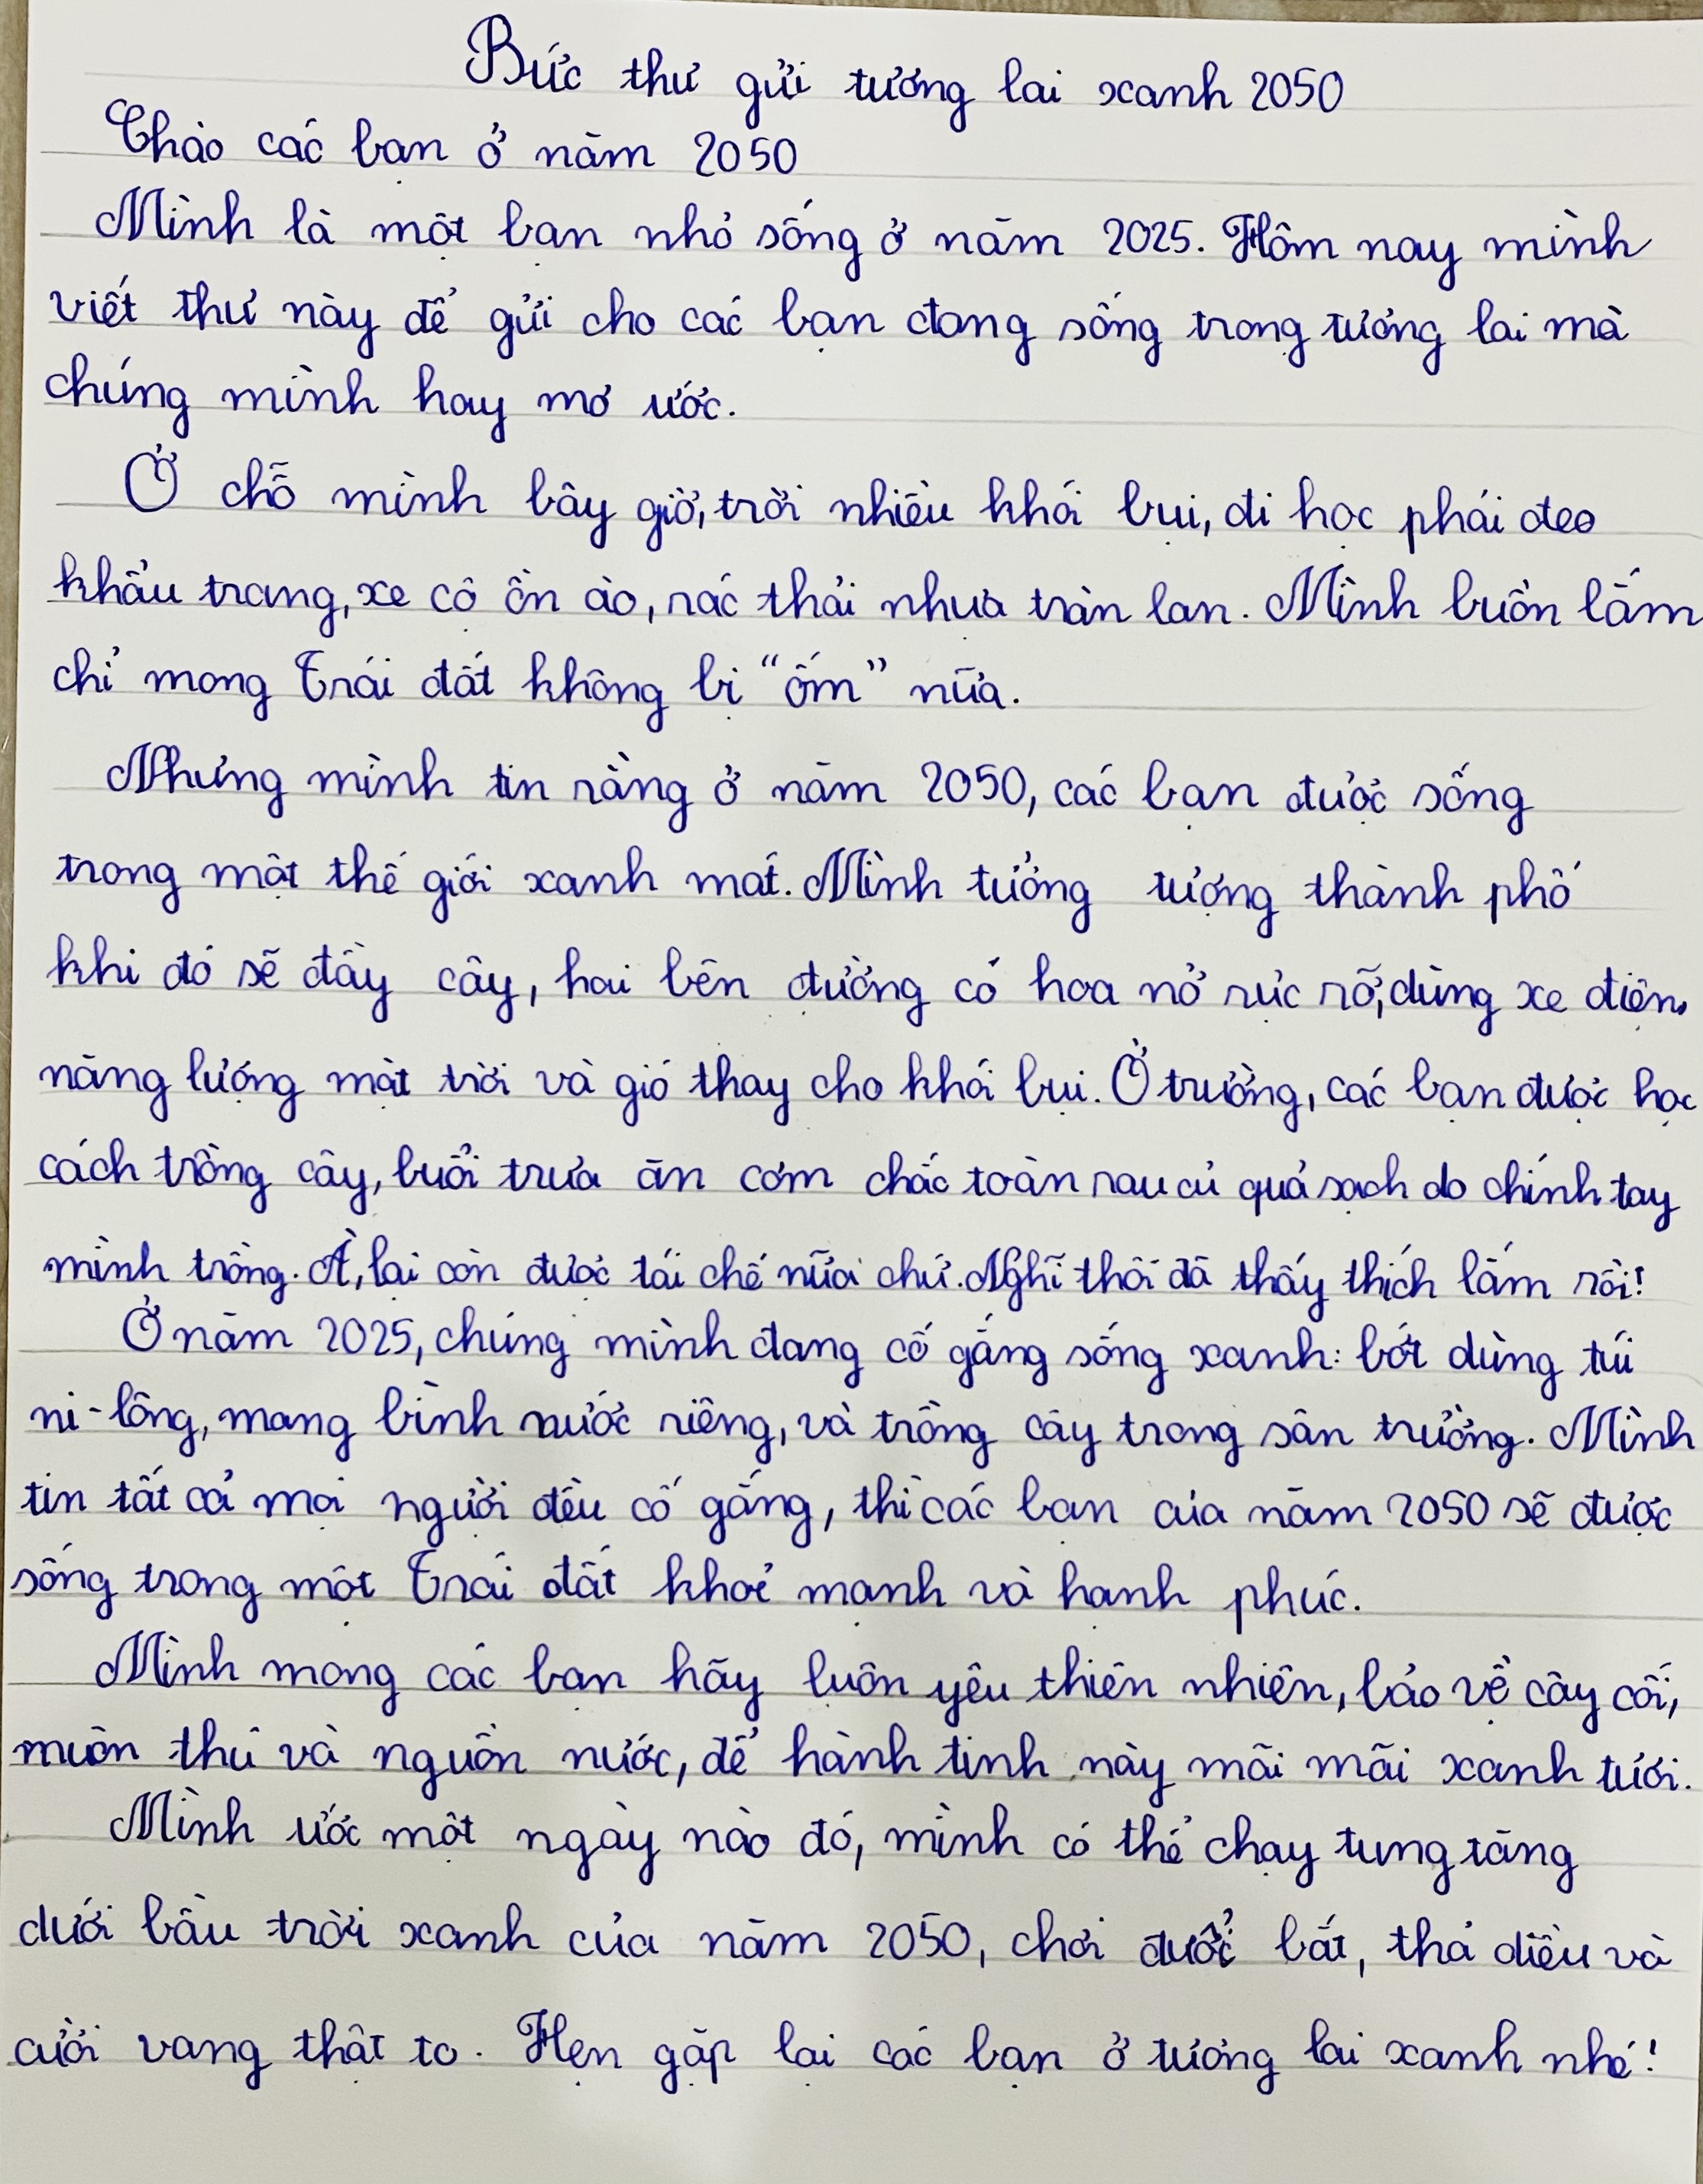 Bức thư gửi tương lai xanh 2050
Chào các bạn ở năm 2050
Mình là một bạn nhỏ sống ở năm 2025. Hôm nay mình
viết thư này để gửi cho các bạn đang sống trong tương lai mà
chúng mình hay mơ ước.
Ở chỗ mình bây giờ, trời nhiều khói bụi, đi học phải đeo
khẩu trang, xe cộ ồn ào, rác thải nhựa tràn lan. Mình buồn lắm
chỉ mong Trái đất không bị “ốm” nữa.
Nhưng mình tin rằng ở năm 2050, các bạn được sống
trong một thế giới xanh mát. Mình tưởng tượng thành phố
khi đó sẽ đầy cây, hai bên đường có hoa nở rực rỡ, dùng xe điện,
năng lượng mặt trời và gió thay cho khói bụi. Ở trường, các bạn được học
cách trồng cây, buổi trưa ăn cơm chắc toàn rau củ quả sạch do chính tay
mình trồng. À, lại còn được tái chế nữa chứ. Nghĩ thôi đã thấy thích lắm rồi!
Ở năm 2025, chúng mình đang cố gắng sống xanh: bớt dùng túi
ni-lông, mang bình nước riêng, và trồng cây trong sân trường. Mình
tin tất cả mọi người đều cố gắng, thì các bạn của năm 2050 sẽ được
sống trong một Trái đất khoẻ mạnh và hạnh phúc.
Mình mong các bạn hãy luôn yêu thiên nhiên, bảo vệ cây cối,
muôn thú và nguồn nước, để hành tinh này mãi mãi xanh tươi.
Mình ước một ngày nào đó, mình có thể chạy tung tăng
dưới bầu trời xanh của năm 2050, chơi đuổi bắt, thả diều và
cười vang thật to. Hẹn gặp lại các bạn ở tương lai xanh nhé!